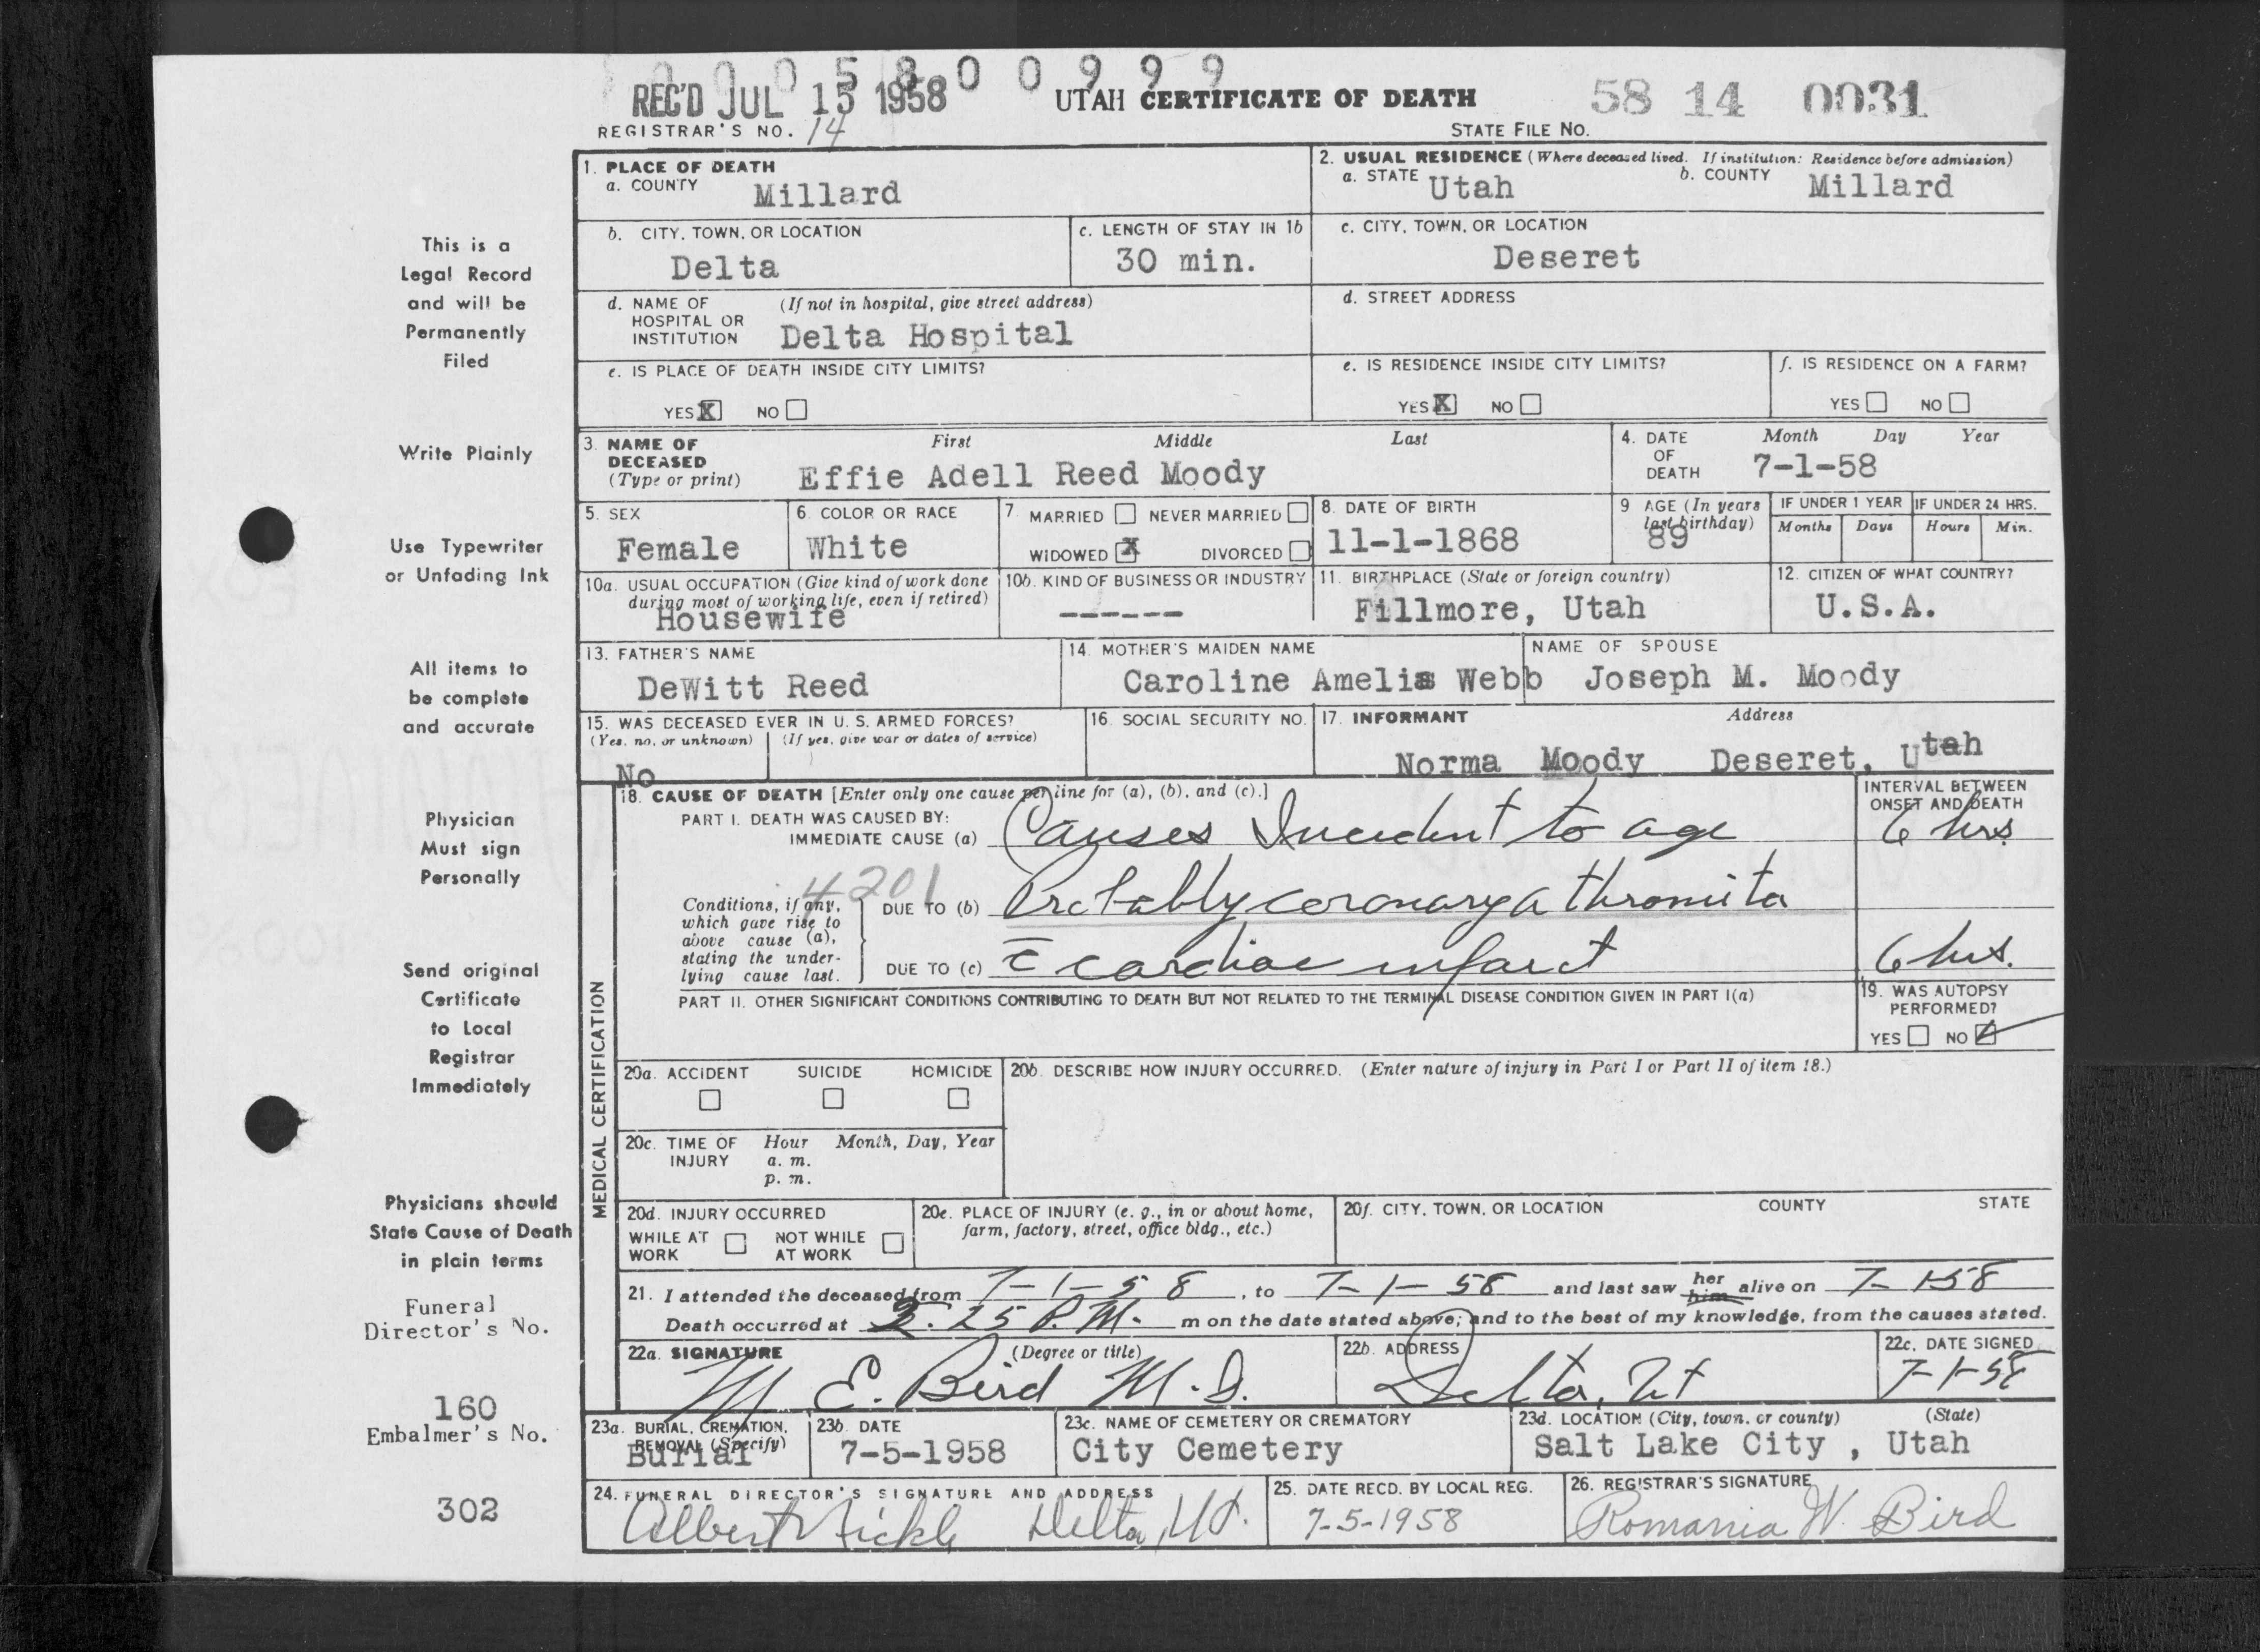 0 0 0 5 8 0 0 9 9 9
REC'D JUL 15 1958 UTAH CERTIFICATE OF DEATH 58 14 0031
REGISTRAR'S NO. 14 STATE FILE NO.
1. PLACE OF DEATH
a. COUNTY Millard
2. USUAL RESIDENCE (Where deceased lived. If institution: Residence before admission)
a. STATE Utah b. COUNTY Millard
b. CITY, TOWN, OR LOCATION Delta
c. LENGTH OF STAY IN 1b 30 min.
c. CITY, TOWN, OR LOCATION Deseret
d. NAME OF (If not in hospital, give street address)
HOSPITAL OR
INSTITUTION Delta Hospital
d. STREET ADDRESS
e. IS PLACE OF DEATH INSIDE CITY LIMITS?
YES X NO
e. IS RESIDENCE INSIDE CITY LIMITS?
YES X NO
f. IS RESIDENCE ON A FARM?
YES NO
3. NAME OF DECEASED (Type or print) First Middle Last
Effie Adell Reed Moody
4. DATE OF DEATH Month Day Year
7-1-58
5. SEX Female
6. COLOR OR RACE White
7. MARRIED NEVER MARRIED
WIDOWED X DIVORCED
8. DATE OF BIRTH 11-1-1868
9 AGE (In years last birthday) 89
IF UNDER 1 YEAR Months Days
IF UNDER 24 HRS. Hours Min.
10a. USUAL OCCUPATION (Give kind of work done during most of working life, even if retired)
Housewife
10b. KIND OF BUSINESS OR INDUSTRY
------
11. BIRTHPLACE (State or foreign country)
Fillmore, Utah
12. CITIZEN OF WHAT COUNTRY?
U.S.A.
13. FATHER'S NAME
DeWitt Reed
14. MOTHER'S MAIDEN NAME
Caroline Amelia Webb
NAME OF SPOUSE
Joseph M. Moody
15. WAS DECEASED EVER IN U. S. ARMED FORCES?
(Yes, no, or unknown) (If yes, give war or dates of service)
No
16. SOCIAL SECURITY NO.
17. INFORMANT Address
Norma Moody Deseret, Utah
MEDICAL CERTIFICATION
18. CAUSE OF DEATH [Enter only one cause per line for (a), (b), and (c).]
INTERVAL BETWEEN ONSET AND DEATH
PART I. DEATH WAS CAUSED BY:
IMMEDIATE CAUSE (a) Causes Incident to age 6 hrs
4201
Conditions, if any, which gave rise to above cause (a), stating the underlying cause last.
DUE TO (b) Probably coronary
DUE TO (c) c̄ cardiac infarct 6 hrs.
PART II. OTHER SIGNIFICANT CONDITIONS CONTRIBUTING TO DEATH BUT NOT RELATED TO THE TERMINAL DISEASE CONDITION GIVEN IN PART I(a)
19. WAS AUTOPSY PERFORMED?
YES NO
20a. ACCIDENT SUICIDE HOMICIDE
20b. DESCRIBE HOW INJURY OCCURRED. (Enter nature of injury in Part I or Part II of item 18.)
20c. TIME OF INJURY Hour Month, Day, Year
a. m.
p. m.
20d. INJURY OCCURRED
WHILE AT WORK NOT WHILE AT WORK
20e. PLACE OF INJURY (e. g., in or about home, farm, factory, street, office bldg., etc.)
20f. CITY, TOWN, OR LOCATION COUNTY STATE
21. I attended the deceased from 7-1-58, to 7-1-58 and last saw her him alive on 7-1-58
Death occurred at 2.25 P.M. m on the date stated above; and to the best of my knowledge, from the causes stated.
22a. SIGNATURE (Degree or title)
M E. Bird M.D.
22b. ADDRESS
Delta, Ut
22c. DATE SIGNED
7-1-58
23a. BURIAL, CREMATION, REMOVAL (Specify)
Burial
23b. DATE
7-5-1958
23c. NAME OF CEMETERY OR CREMATORY
City Cemetery
23d. LOCATION (City, town, or county) (State)
Salt Lake City , Utah
24. FUNERAL DIRECTOR'S SIGNATURE AND ADDRESS
Albert Nickle Delta, Ut.
25. DATE RECD. BY LOCAL REG.
7-5-1958
26. REGISTRAR'S SIGNATURE
Romania W. Bird
This is a
Legal Record
and will be
Permanently
Filed
Write Plainly
Use Typewriter
or Unfading Ink
All items to
be complete
and accurate
Physician
Must sign
Personally
Send original
Certificate
to Local
Registrar
Immediately
Physicians should
State Cause of Death
in plain terms
Funeral
Director's No.
160
Embalmer's No.
302